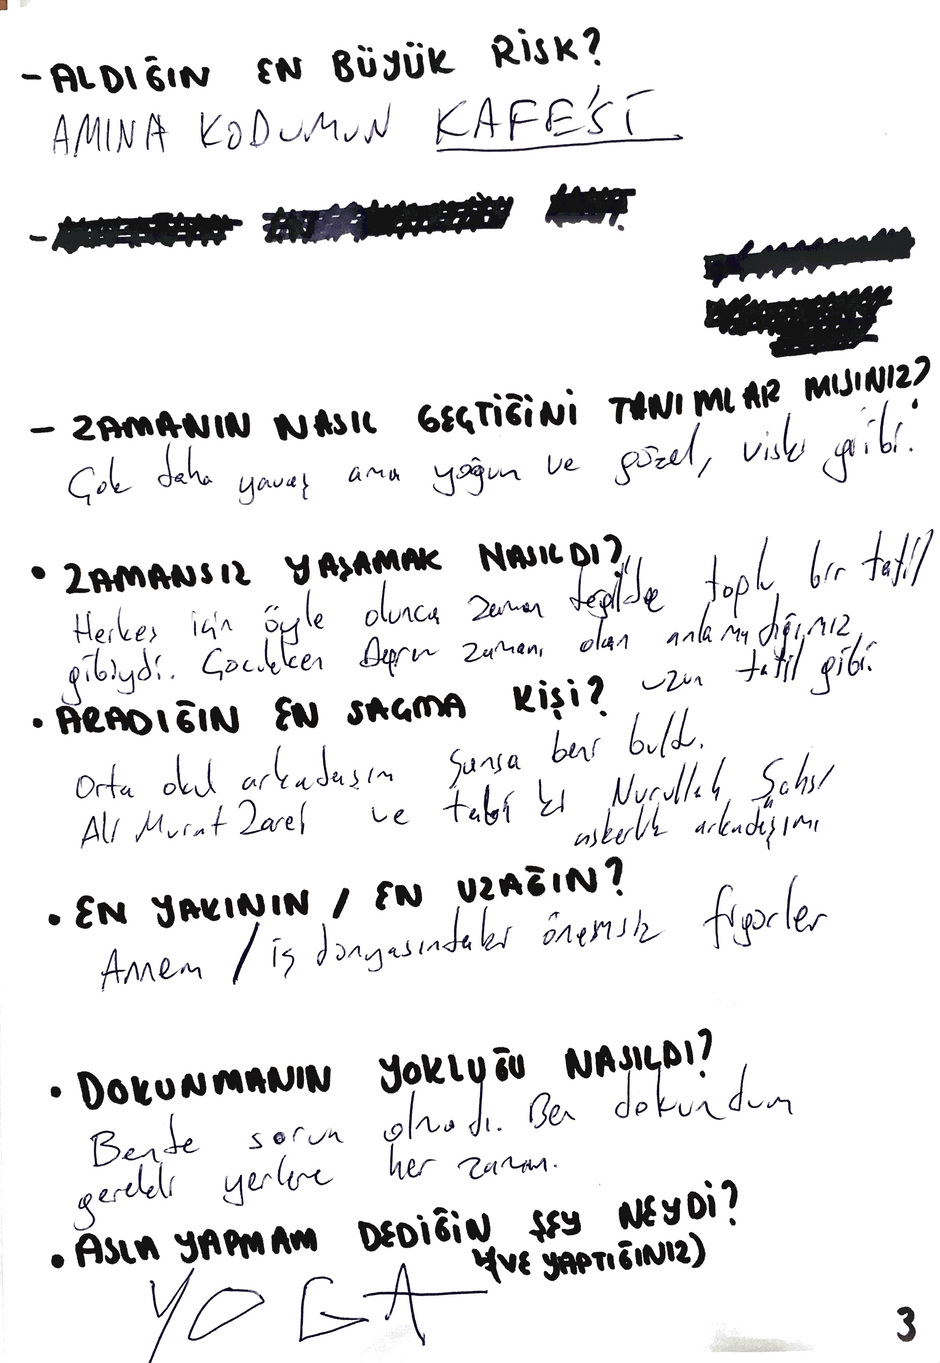 - ALDIĞIN EN BÜYÜK RİSK?
AMINA KODUMUN KAFE'Sİ
-
- ZAMANIN NASIL GEÇTİĞİNİ TANIMLAR MISINIZ?
Çok daha yavaş ama yoğun ve güzel, viski gibi.
• ZAMANSIZ YAŞAMAK NASILDI?
Herkes için öyle olunca zaman değilde toplu bir tatil
gibiydi. Çocukken zamanı olan anlamadığımız
uzun tatil gibi.
• ARADIĞIN EN SAÇMA KİŞİ?
Orta okul arkadaşım Şansa beni buldu.
Ali Murat Zarei ve tabi ki Nurullah Şahsi
askerlik arkadaşımı
• EN YAKININ / EN UZAĞIN?
Annem / iş dünyasındaki önemsiz figürler
• DOKUNMANIN YOKLUĞU NASILDI?
Bende sorun olmadı. Ben dokundum
gerekli yerlere her zaman.
• ASLA YAPMAM DEDİĞİN ŞEY NEYDİ?
(VE YAPTIĞINIZ)
YOGA
3